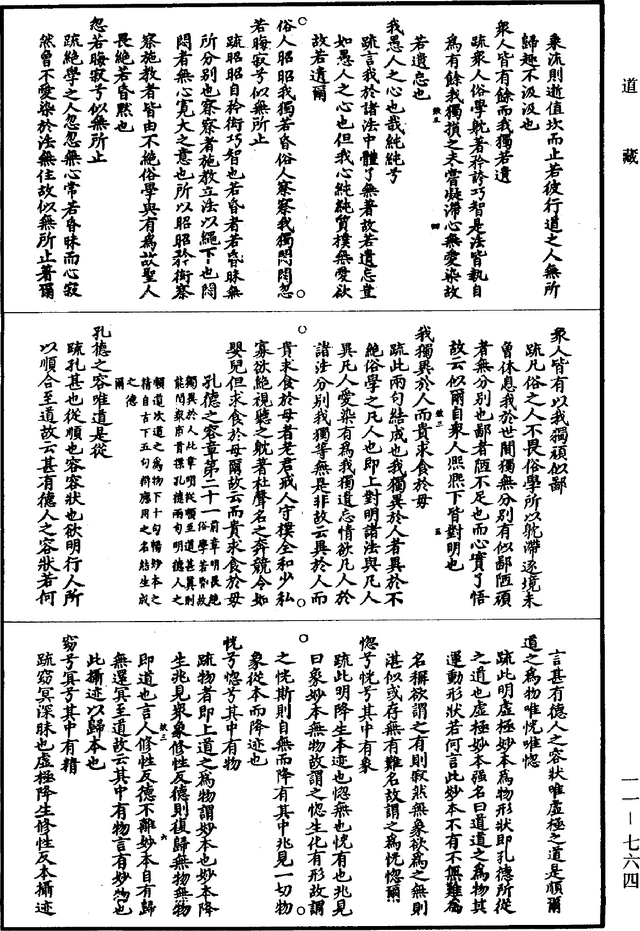 道藏
乘流則逝值坎而止若彼行道之人無所
歸趣不汲汲也
衆人皆有餘而我獨若遺
疏衆人俗學躭著矜誇巧智是法皆執自
為有餘我獨損之未嘗凝滯心無愛染故
若遺忘也
我愚人之心也哉純純兮
疏言我於諸法中體了無著故若遺忘豈
如愚人之心也但我心純純質樸無愛欲
故若遺爾
俗人昭昭我獨若昏俗人察察我獨悶悶忽
若晦寂兮似無所止
疏昭昭自矜衒巧智也若昏者若昏昧無
所分別也察察者施教立法以繩下也悶
悶者無心寬大之意也所以昭昭矜衒察
察施教者皆由不絕俗學與有為故聖人
畏絕若昏黙也
忽若晦寂兮似無所止
疏絕學之人忽忽無心常若昏昧而心寂
然曾不愛染於法無住故似無所止著爾
衆人皆有以我獨頑似鄙
疏凡俗之人不畏俗學所以躭滯逐境未
曾休息我於世間獨無分別有似鄙陋頑
者無分別也鄙者陋不足也而心實了悟
故云似爾自衆人熙熙下皆對明也
我獨異於人而貴求食於母
疏此兩句結成也我獨異於人者異於不
絕俗學之凡人也即上對明諸法與凡人
異凡人愛染有為我獨遺忘情欲凡人於
諸法分別我獨等無是非故云異於人而
貴求食於母者老君戒人守樸全和少私
寡欲絕視聽之躭著杜聲名之奔競令如
嬰兒但求食於母爾故云而貴求食於母
孔德之容章第二十一
前章明畏絕俗學若昏故
獨異於人此章明從順至道甚真則
能閱衆甫首標孔德兩句明德人之
順道次道之為物下十句暢妙本之
精自古下五句辯應用之名結生成
之德
爾
孔德之容唯道是從
疏孔甚也從順也容容狀也欲明行人所
以順合至道故云甚有德人之容狀若何
言甚有德人之容狀唯虛極之道是順爾
道之為物唯恍唯惚
疏此明虛極妙本為物形狀即孔德所從
之道也虛極妙本強名曰道道之為物其
運動形狀若何言此妙本不有不無難為
名稱欲謂之有則寂然無象欲為之無則
湛似或存無有難名故謂之為恍惚爾
惚兮恍兮其中有象
疏此明降生本迹也惚無也恍有也兆見
曰象妙本無物故謂之惚生化有形故謂
之恍斯則自無而降有其中兆見一切物
象從本而降迹也
恍兮惚兮其中有物
疏物者即上道之為物謂妙本也妙本降
生兆見衆象修性反德則復歸無物無物
即道也言人修性反德不離妙本自有歸
無還冥至道故云其中有物言有妙物也
此攝迹以歸本也
窈兮冥兮其中有精
疏窈冥深昧也虛極降生修性反本攝迹
一一－七六四